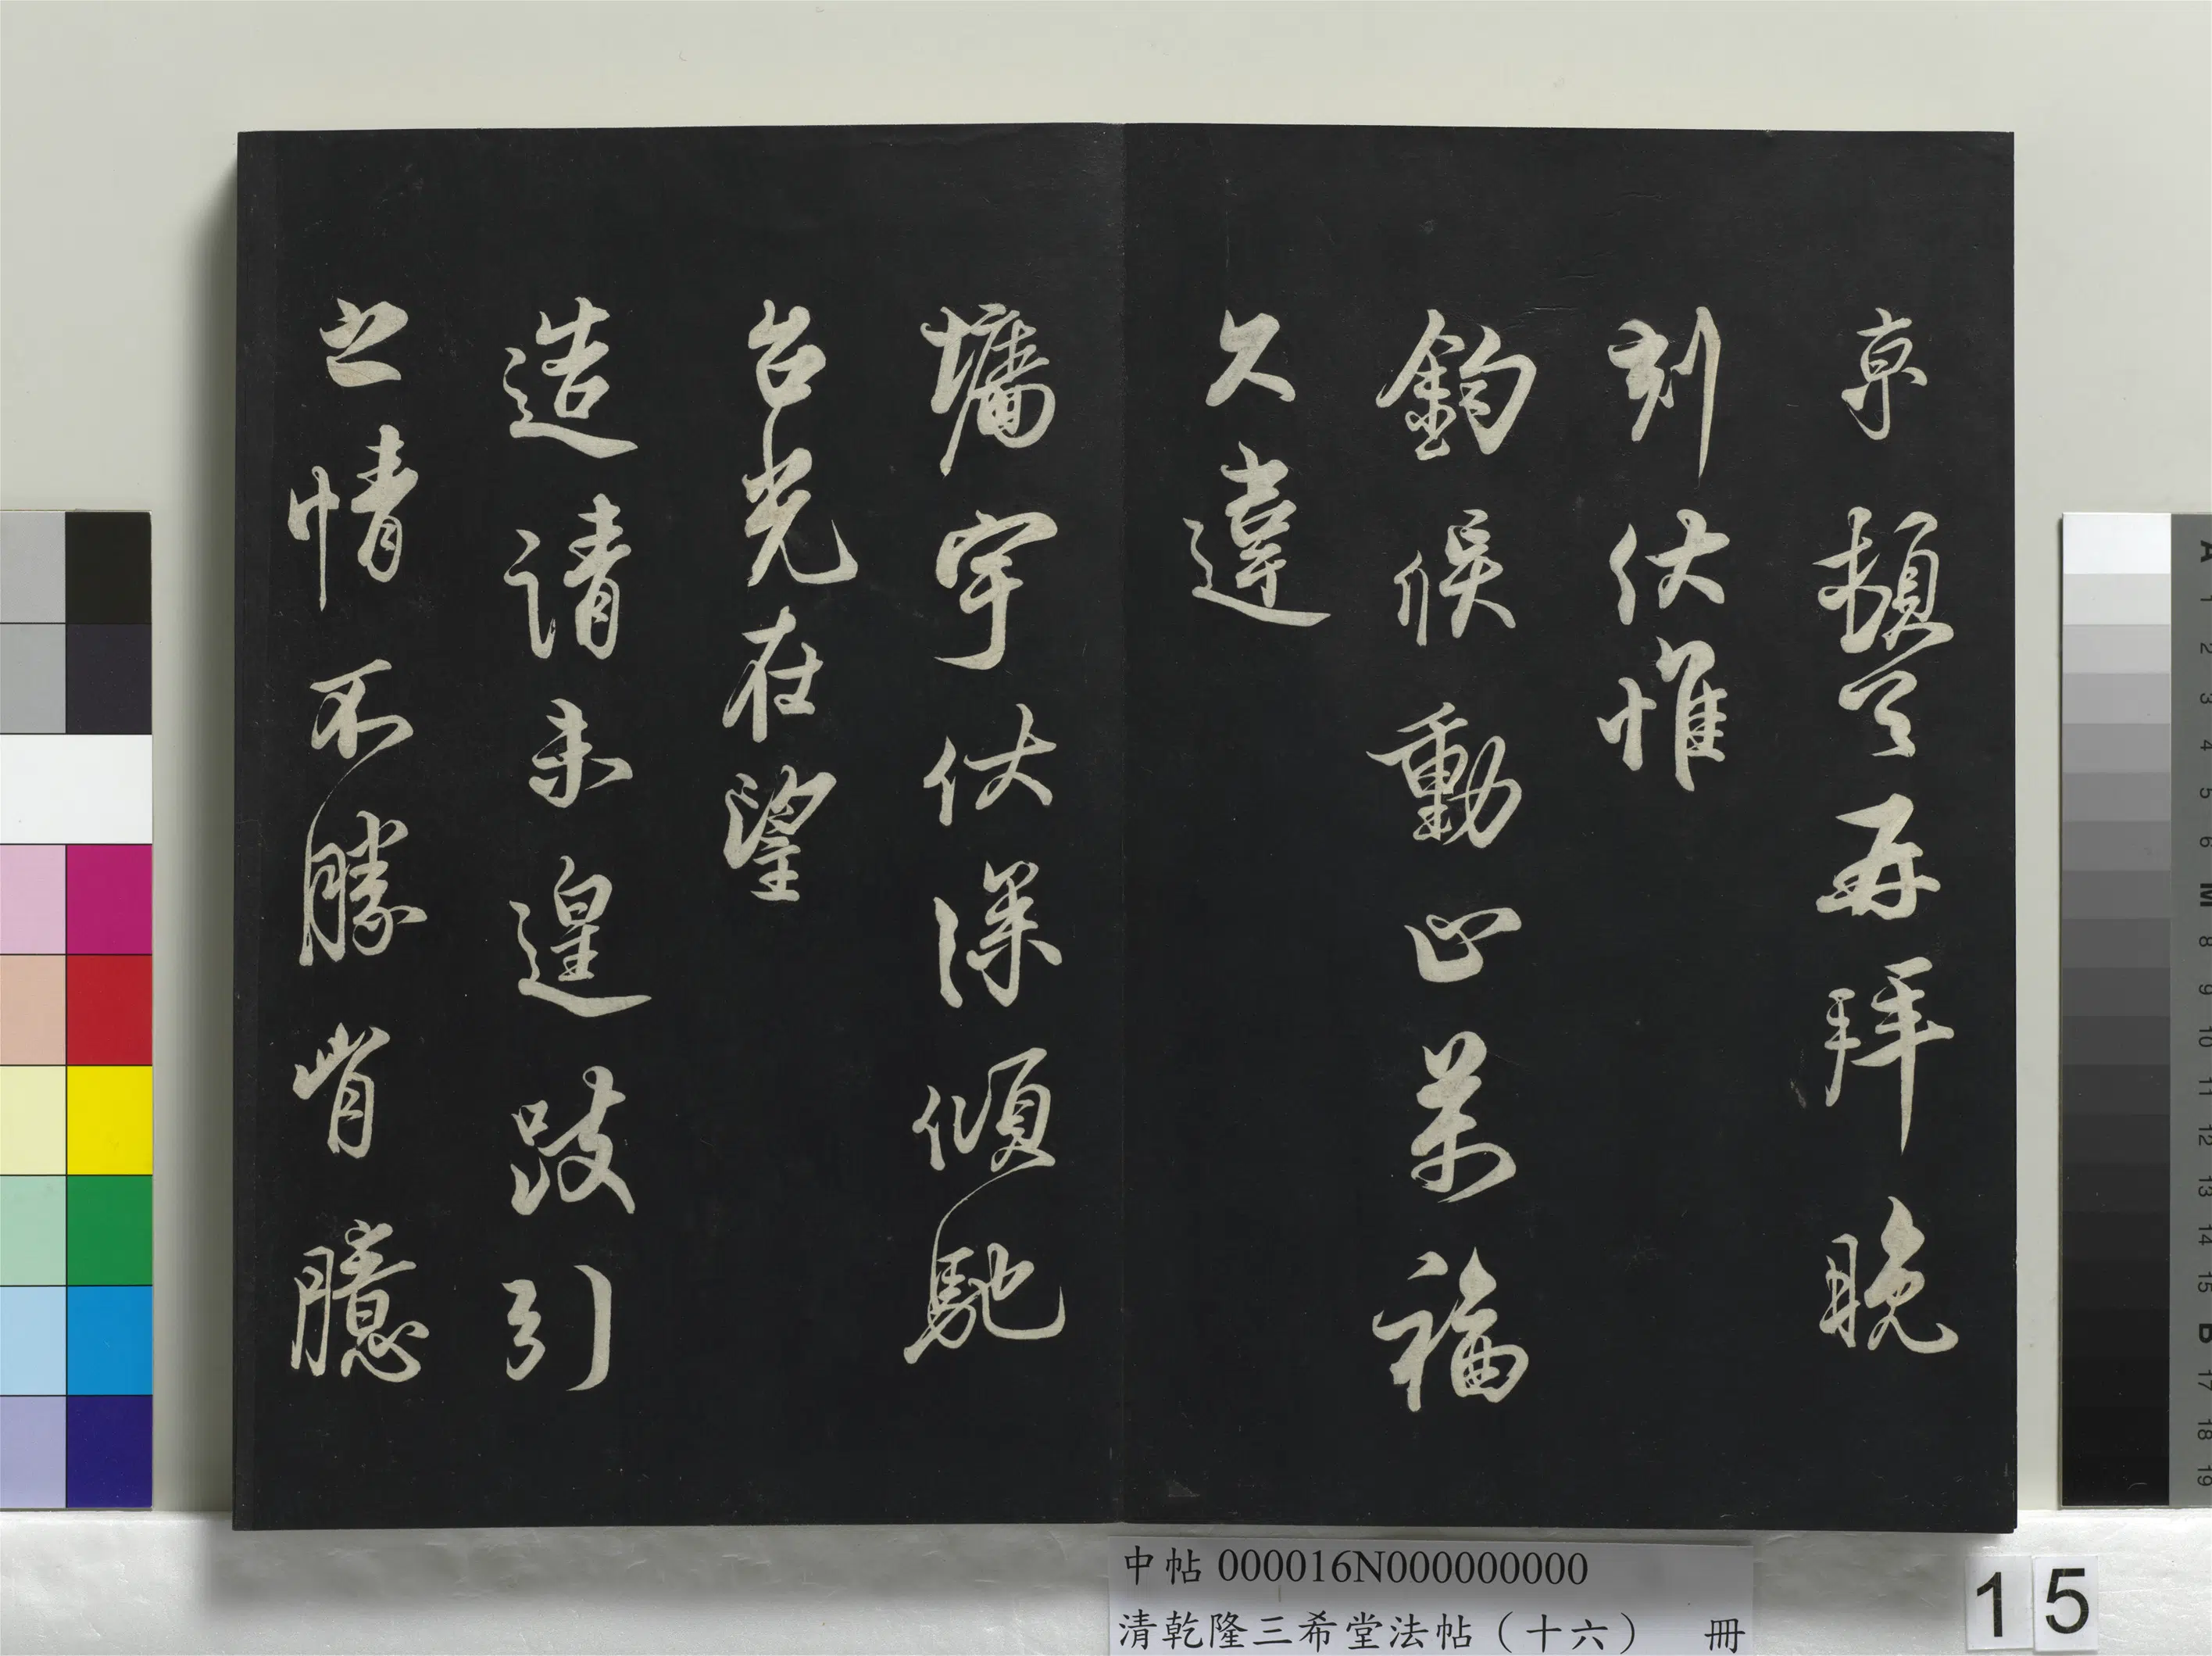 京頓首再拜晚
刻伏惟
鈞候動止萬福
久違
墉宇伏深傾馳
台光在望
造請未遑跂引
之情不勝胷臆
中帖 000016N000000000
清乾隆三希堂法帖（十六） 冊
15
A
1
2
3
4
5
6
M
8
9
10
11
12
13
14
15
B
17
18
19